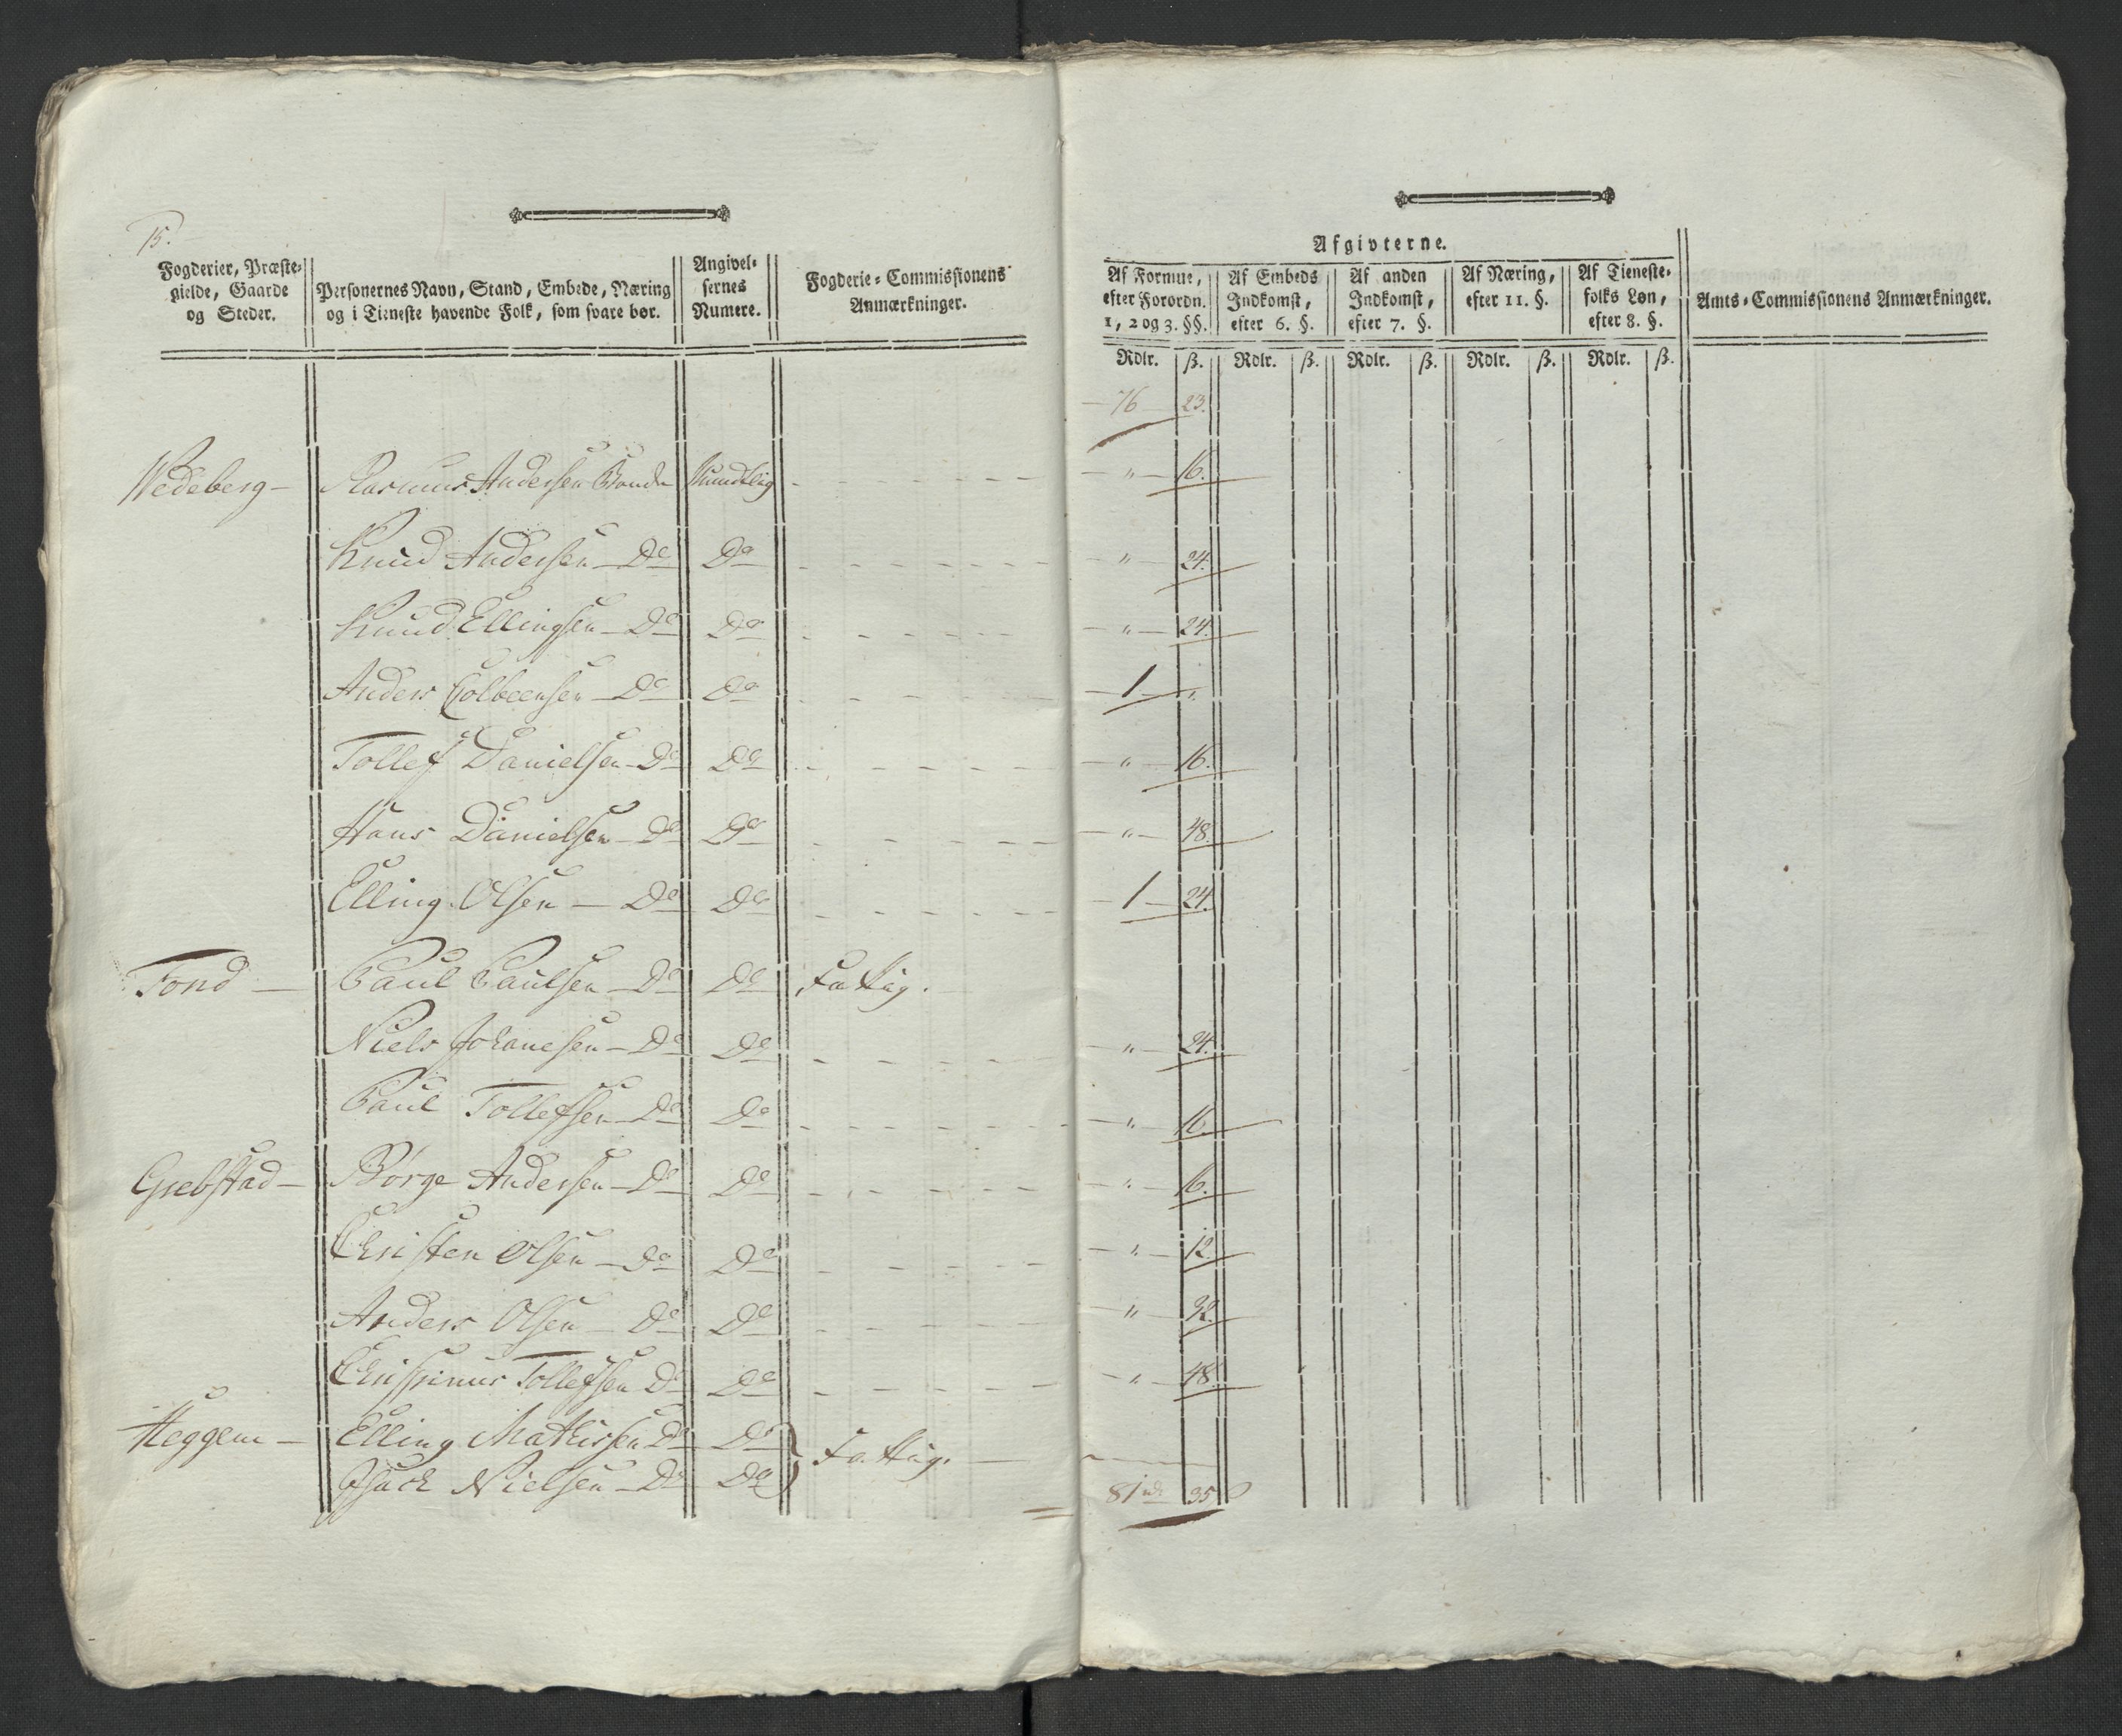 15.
Fogderier, Præste-
gielde, Gaarde
og Steder.
Personernes Navn, Stand, Embede, Næring
og i Tieneste havende Folk, som svare bør.
Angivel-
sernes
Numere.
Fogderie-Commissionens
Anmærkninger.
Afgivterne.
Af Formue,
efter Forordn.
1, 2 og 3. §§.
Af Embeds
Indkomst,
efter 6. §.
Af anden
Indkomst,
efter 7. §.
Af Næring,
efter 11. §.
Af Tieneste-
folks Løn,
efter 8. §.
Amts-Commissionens Anmærkninger.
Rdlr. ß. Rdlr. ß. Rdlr. ß. Rdlr. ß. Rdlr. ß.
— 76 — 23.
Wedeberg — Rasmus Andersen Bonde Mundtlig — " — 16.
Knud Andersen — Do Do — " — 24.
Knud Ellingsen — Do Do — " — 24.
Anders Colbeensen — Do Do — 1 — "
Tollef Danielsen — Do Do — " — 16.
Hans Danielsen — Do Do — " — 48.
Elling Olsen — Do Do — 1 — 24.
Fond — Paul Paulsen — Do Do Fattig.
Niels Johanesen — Do Do — " — 24.
Paul Tollefsen — Do Do — " — 16.
Giebstad — Börge Andersen — Do Do — " — 16.
Christen Olsen — Do Do — " — 12.
Anders Olsen — Do Do — " — 32.
Chrispinus Tollefsen Do Do — " — 48.
Heggem — Elling Mathissen Do Do } Fattig. —
Isach Nielsen — Do Do
81 rd 35 ß